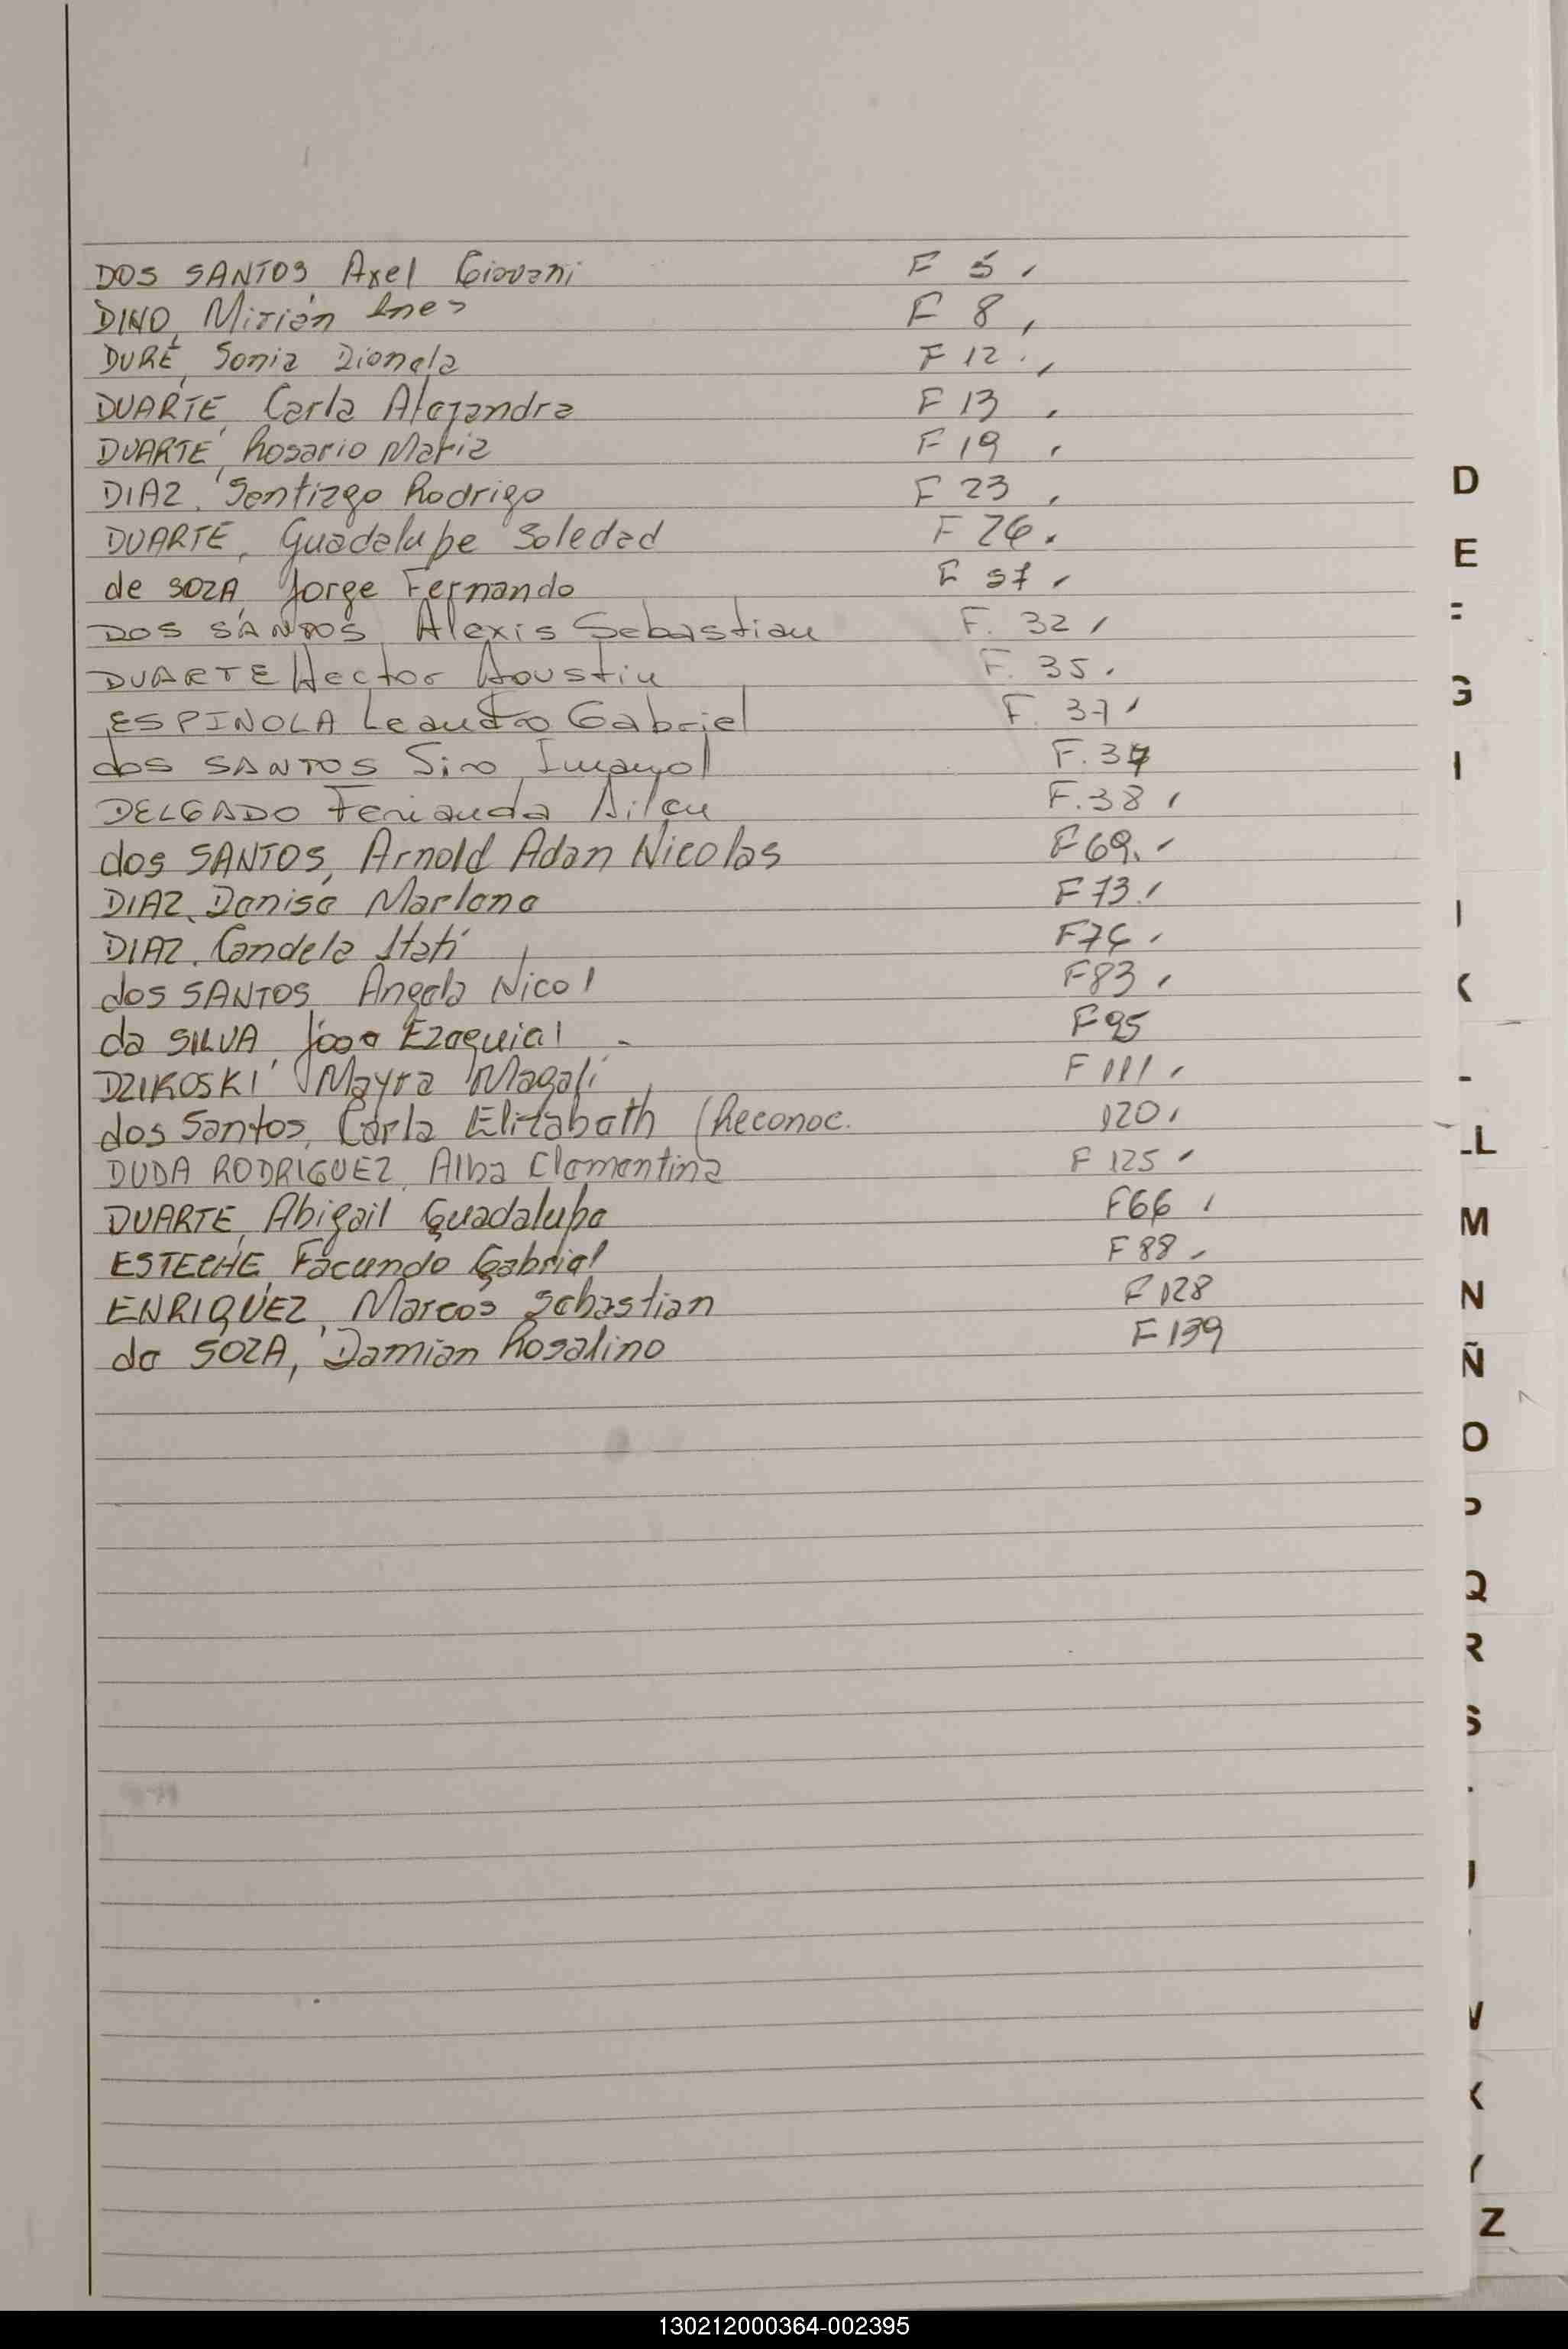 DOS SANTOS, Axel Giovani F 5,
DINO, Mirian Ines F 8,
DURÉ, Sonia Dionela F 12.,
DUARTE, Carla Alejandra F 13,
DUARTE, Rosario Maria F 19,
DIAZ, Santiago Rodrigo F 23,
DUARTE, Guadalupe Soledad F 26.
de SOZA, Jorge Fernando F
DOS SANTOS, Alexis Sebastian F. 32,
DUARTE Hector Agustin F. 35.
ESPINOLA Leandro Gabriel F. 37,
dos SANTOS Siro Imanol F.
DELGADO Fernanda Ailen F.38,
dos SANTOS, Arnold Adan Nicolas F69.,
DIAZ, Denise Marlene F73.,
DIAZ, Candela Itatí F76,
dos SANTOS, Angela Nicol F83,
da SILVA, Ezequiel F95
DZIKOSKI, Mayra Magali F111,
dos Santos, Carla Elizabeth (Reconoc. 120,
DUDA RODRIGUEZ, Alba Clementina F 125,
DUARTE, Abigail Guadalupe F66,
ESTECHE, Facundo Gabriel F 88,
ENRIQUEZ, Marcos Sebastian F 128
de SOZA, Damian Rosalino F 139
D
E
G
I
LL
M
N
Ñ
O
Q
R
S
Y
Z
130212000364-002395